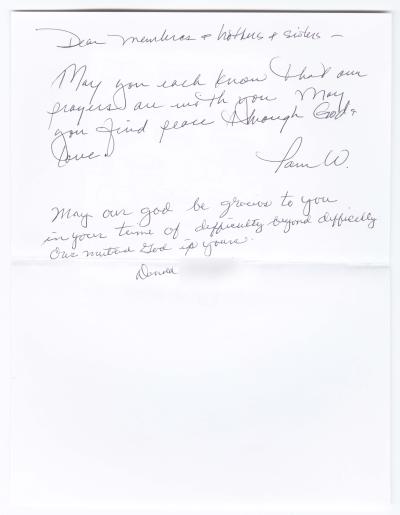 Dear Members + brothers + sisters –
May you each know that our
prayers are with you. May
you find peace through God's
love.
Pam W.
May our god be gracious to you
in your time of difficulty beyond difficulty
Our mutual God is yours.
Donna